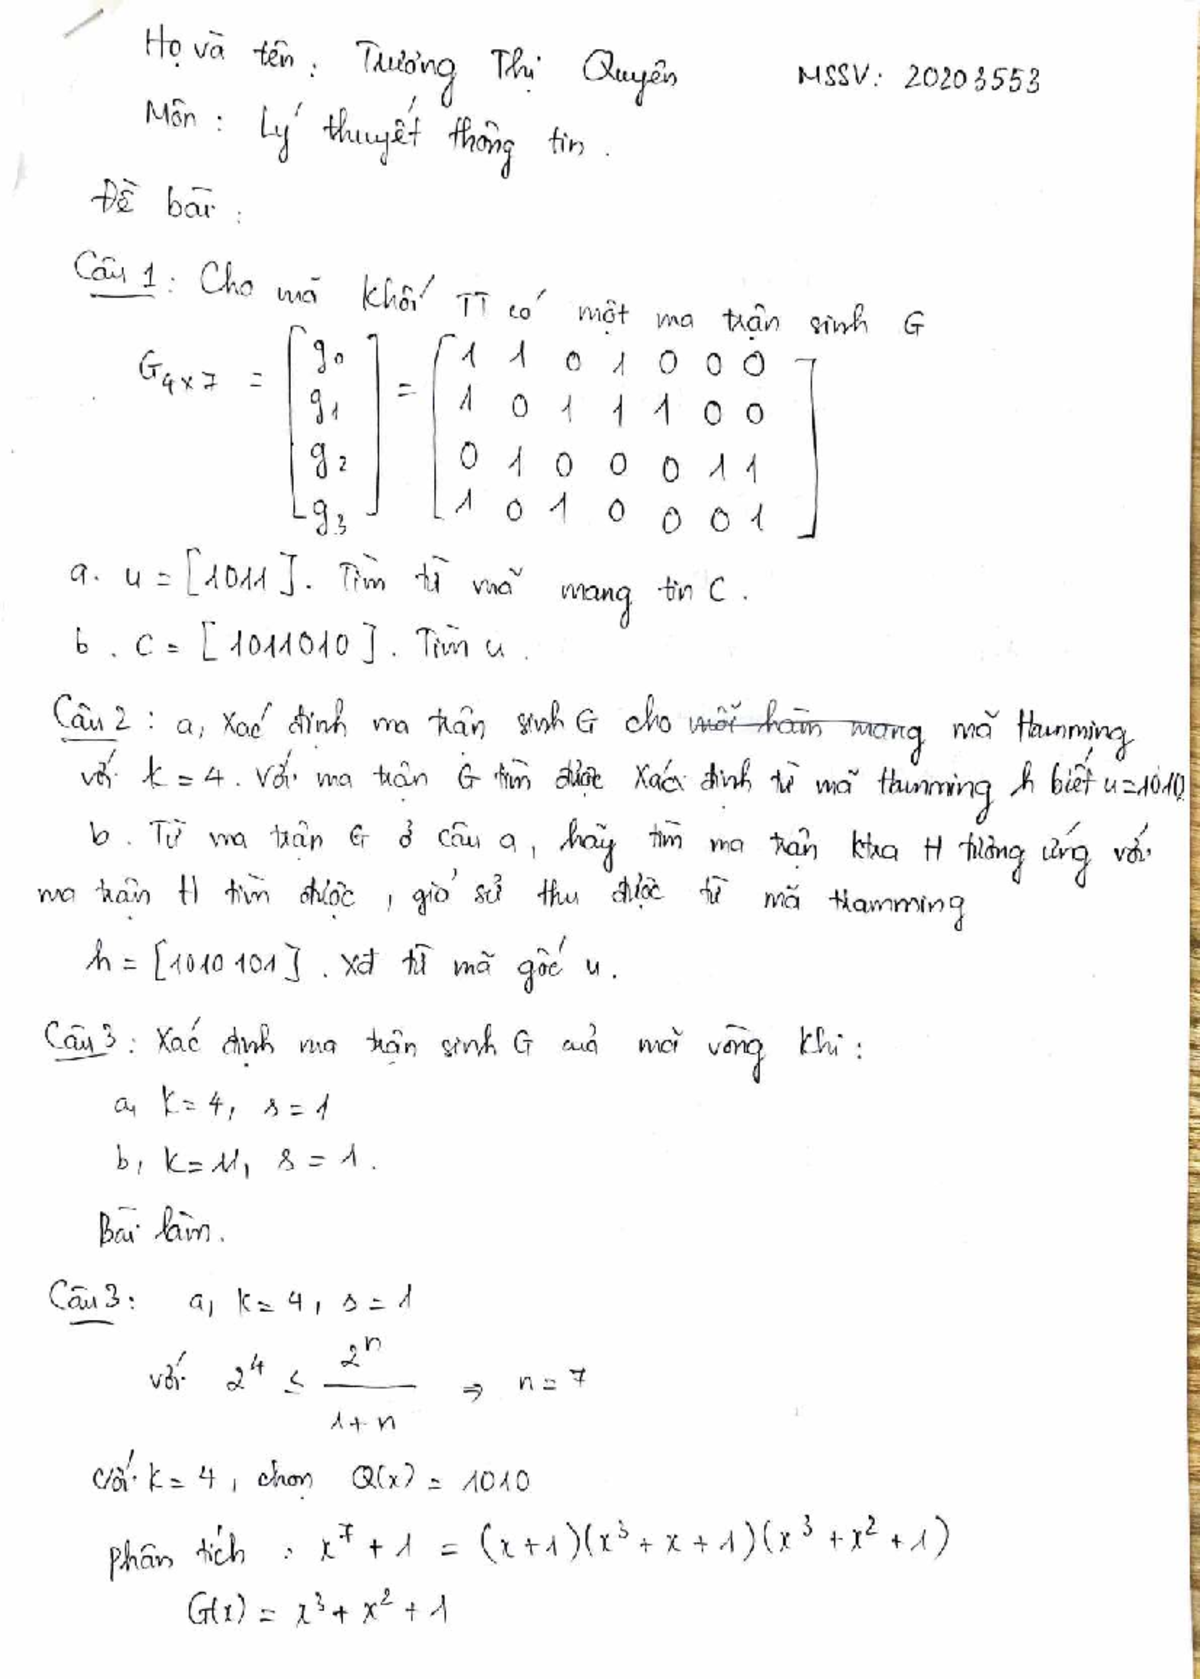 Họ và tên: Trương Thị Quyên MSSV: 20203553
Môn: Lý thuyết thông tin.
Đề bài:
Câu 1: Cho mã khối TT có một ma trận sinh G
G4x7 = [g0 g1 g2 g3] = [1 1 0 1 0 0 0
1 0 1 1 1 0 0
0 1 0 0 0 1 1
1 0 1 0 0 0 1]
a. u = [1011]. Tìm từ mã mang tin C.
b. C = [1011010]. Tìm u.
Câu 2: a, Xác định ma trận sinh G cho mỗi hàm mang mã Hamming
với k = 4. Với ma trận G tìm được xác định từ mã Hamming h biết u=1010.
b. Từ ma trận G ở câu a, hãy tìm ma trận ktra H tương ứng với
ma trận H tìm được, giả sử thu được từ mã Hamming
h = [1010101]. Xđ từ mã gốc u.
Câu 3: Xác định ma trận sinh G của mã vòng khi:
a, k = 4, s = 1
b, k = 11, s = 1.
Bài làm.
Câu 3: a, k = 4, s = 1
với 2^4 ≤ 2^n / (1+n) ⇒ n = 7
với k = 4, chọn Q(x) = 1010
phân tích: x^7 + 1 = (x+1)(x^3 + x + 1)(x^3 + x^2 + 1)
G(x) = x^3 + x^2 + 1